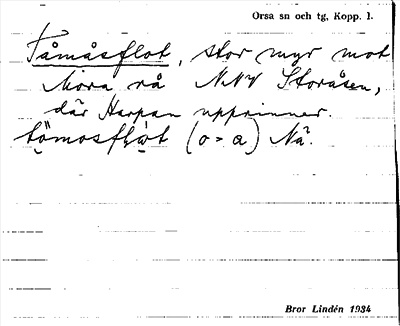 Orsa sn och tg, Kopp. l.
Tåmåsflot, stor myr mot
Mora rå NNV Storåsen,
där Harpan upprinner.
(o = a) Nä.
Bror Lindén 1934